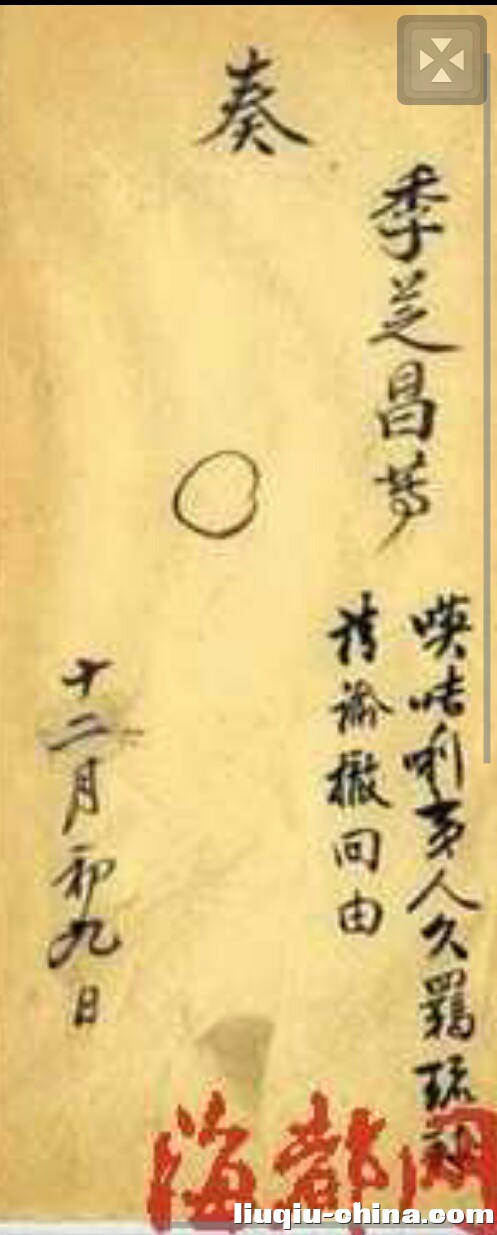 奏
季芝昌等
暎咭唎夷人久羈琉球
請諭撤回由
十二月初九日
海都网
liuqiu-china.com